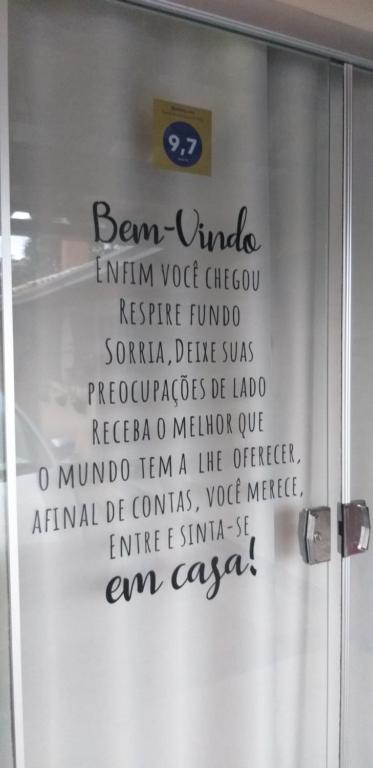 9,7
Bem-Vindo
ENFIM VOCÊ CHEGOU
RESPIRE FUNDO
SORRIA, DEIXE SUAS
PREOCUPAÇÕES DE LADO
RECEBA O MELHOR QUE
O MUNDO TEM A LHE OFERECER,
AFINAL DE CONTAS, VOCÊ MERECE,
ENTRE E SINTA-SE
em casa!